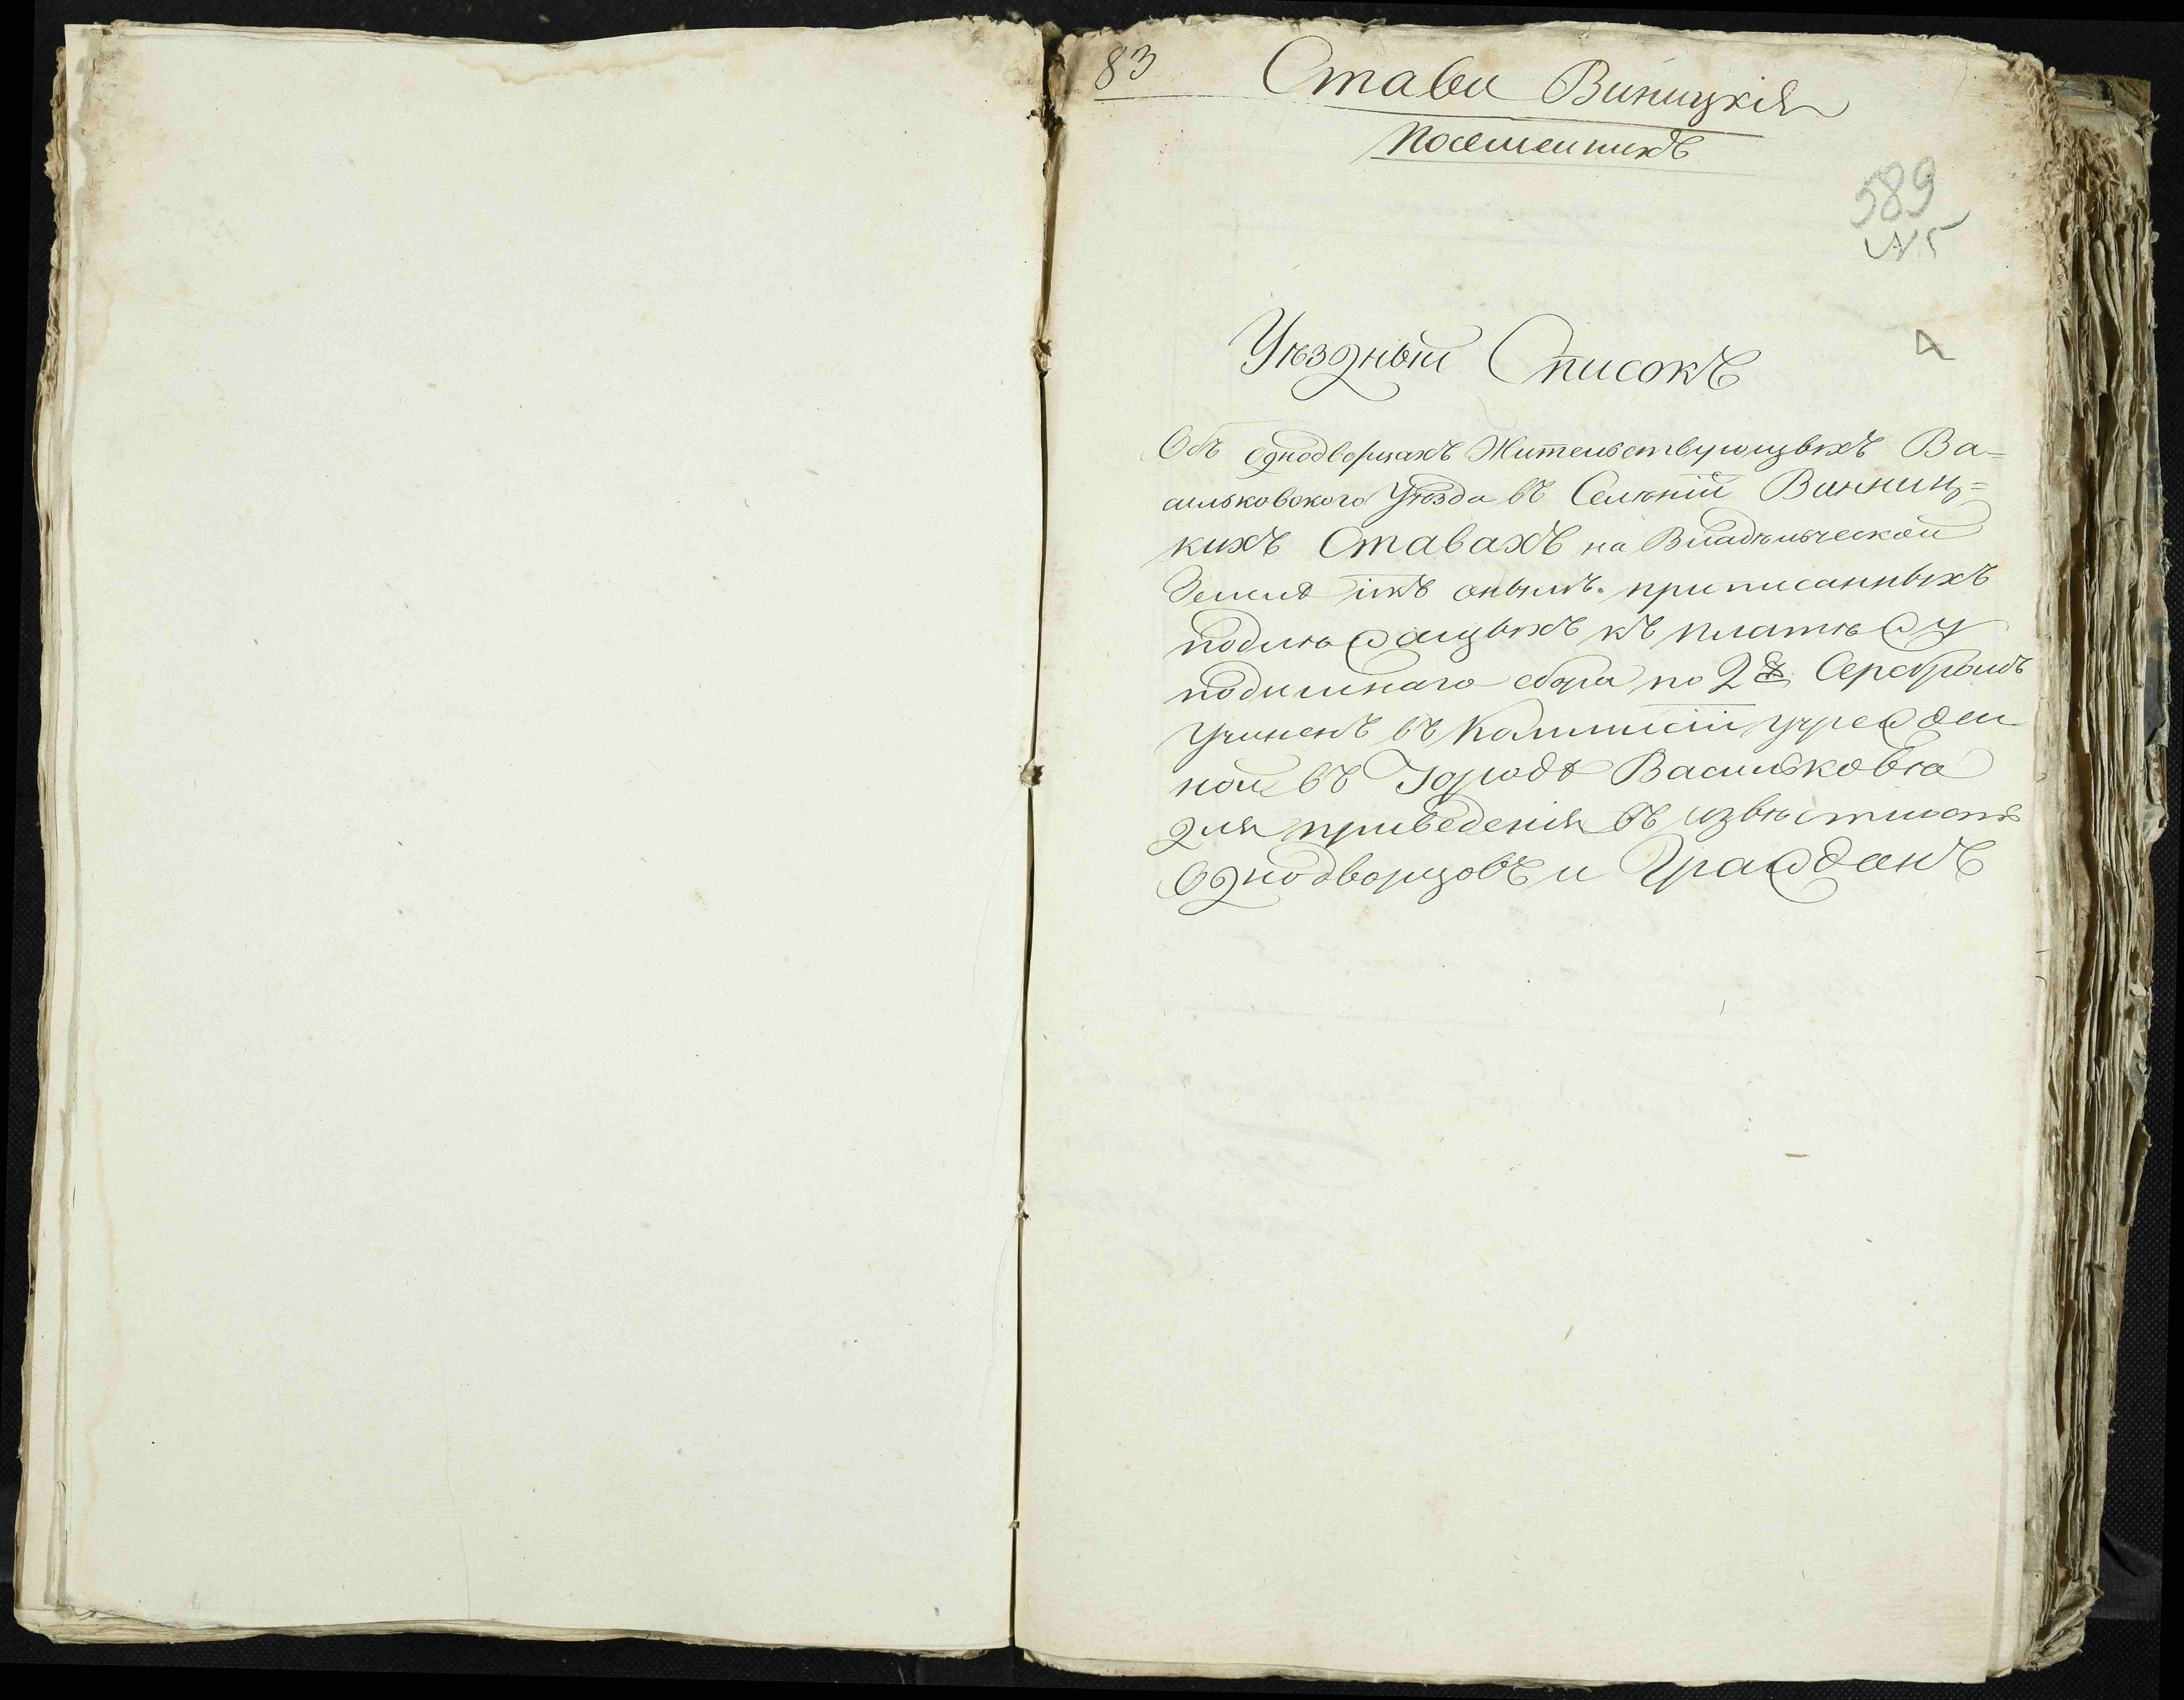 83 Стави Виницкія
589
N5
Уѣздный Списокъ
Объ однодворцахъ Жительствующыхъ Ва=
сильковского Уѣзда въ Селѣніи Винниц=
кихъ Ставахъ на Владѣльческой
Землѣ ікъ онымъ. приписанныхъ
подлѣжащыхъ къ платѣжу
подымнаго сбора по 2 Серебромъ
Учиненъ въ Коммисіи учрежден
ной въ Городѣ Васильковѣа
для приведенія въ извѣстность
Однодворцовъ и Гражданъ